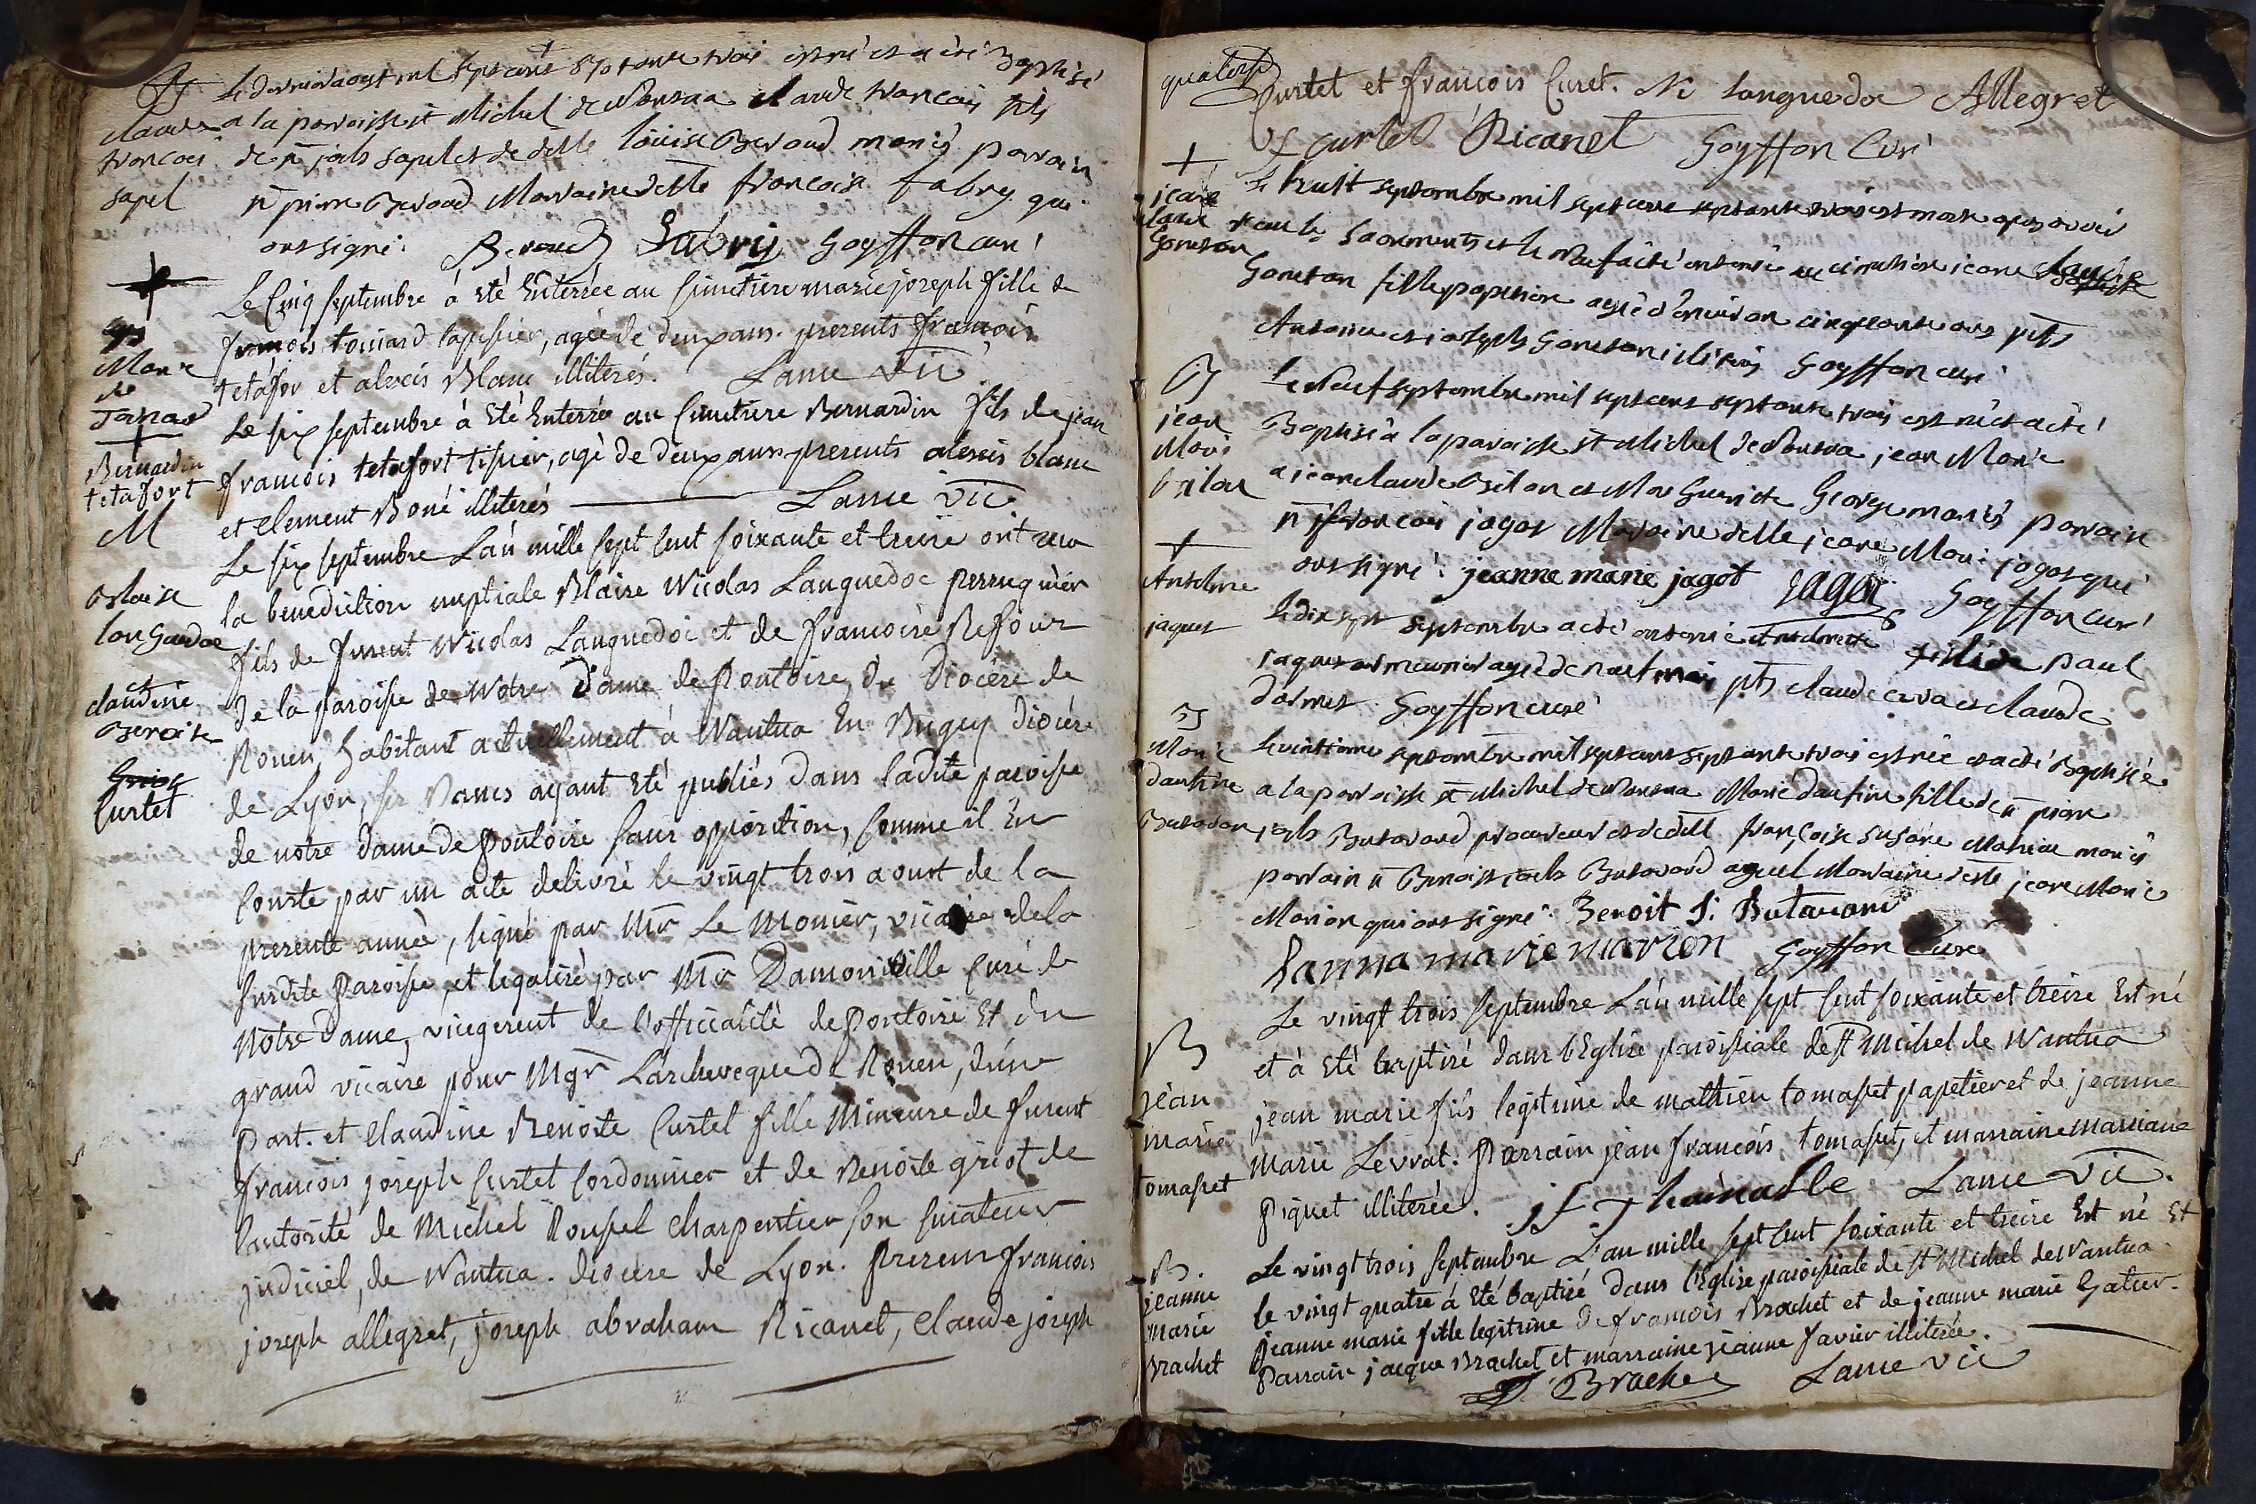 B Le dernier aoust mil sept cent septante trois est né et a été Baptisé
claude a la paroisse st Michel de Nantua claude francois fils
francois de jph sapel et de delle loüise Beroud mariés parrain
sapel pierre Beroud Marraine delle francoise fabry qui
ont signé. Beroud fabry Goyffon curé
Le Cinq septembre à Eté Enterrée au simetiere marie joseph fille de
françois touiard tapissier, agée de deux ans. presents françois
Marie tetafor et alexis Blanc illiterés. Lame vic
de
Le six septembre à Eté Enterrée au Cimetiere Bernardin fils de jean
Bernardin tetafort
francois tetafort tissier, agé de deux ans presents alexis blanc
M et Clement Boné illiterés Lame vic
Le six septembre L'an mille sept cent soixante et treize ont reçu
Blaise la benediction nuptiale Blaise Nicolas Languedoc perruquier
longuedoc fils de furent Nicolas Languedoc et de francoise Refour
de la paroisse de Notre Dame de Pontoise, du Diocèse de
et claudine Benoite Rouen, habitant actuellement à Nantua En Bugey diocése
Griot Curtet
de Lyon, ses Banes ayant Eté publiés dans ladite paroisse
de notre dame de Pontoise sans opposition, comme il En
Conste par un acte delivré le vingt trois aoust de la
presente année, signé par Mr Le Monier, vicaire de la
susdite Paroisse, et legalisé par Mr Damoniville Curé de
Notre Dame, vicegerent de l'officialité de Pontoise Et du
grand vicaire pour Mgr L'archeveque de Rouen, d'une
Part. et Claudine Benoite Curtet fille Mineure de furent
francois joseph Curtet Cordonnier et de Benoite griot de
l'autorité de Michel Roussel Charpentier son curateur
judiciel, de Nantua. diocese de Lyon. Presens francois
joseph allegret, joseph abraham Ricanet, Claude joseph
quatorze
Curtet et francois Curet. Ni Longuedoc Allegret
Curtet Ricanet Goyffon Curé
Le huit septembre mil sept cent septante trois est morte apres avoir
jeane claude Goneton
recu les sacrements et le neuf a été enterrée au cimetière jeane claude
Goneton fille papetiere agée d'environ cinquante ans pts
Antoine et joseph Goneton illitérés Goyffon curé
B Le neuf septembre mil sept cent septante trois est né et a été
jean Baptisé a la paroisse st Michel de Nantua jean Marie
Marie a jean claude Brilon et Marguerite George mariés parrain
brilon
jfrancois jagot Maraine delle jeane Marie jagot qui
ont signé. jeanne marie jagot Jagot Goyffon curé
Anselme jaquet
Le dix sept septembre a été enterré Anselme fils de paul
jaquet meunier agé de neuf mois pts claude et claude
Goyffon curé
B Le vintieme septembre mil sept cent septante trois est née et a été Baptisée
Marie dauphine Butavan
a la paroisse st Michel de Nantua Marie daufine fille de pierre
jph Butavand procureur et de delle françoise susane mariés
parrain Benoist jph Butavand Marraine delle jeane Marie
Marion qui ont signé. Benoit J: Butavand
Janna marie marion Goyffon Curé
Le vingt trois septembre L'an mille sept cent soixante et treize Est né
B et à Eté baptisé dans l'Eglise paroissiale de St Michel de Nantua
jean jean marie fils legitime de mathieu tomasset papetier et de jeanne
marie Marie Levrat. Parrain jean francois tomasset, et marraine mariane
tomasset Piquet illiterée. jf Lame vic.
Le vingt trois septembre L'an mille sept cent soixante et treize Est né Et
B. le vingt quatre à Eté baptisé dans l'Eglise paroissiale de St Michel de Nantua
jeanne marie Brachet
jeanne marie fille legitime de francois Brachet et de jeanne marie Gatier.
Parrain jacque Brachet et marraine jeanne favier illiterée.
J Brachet Lame vic